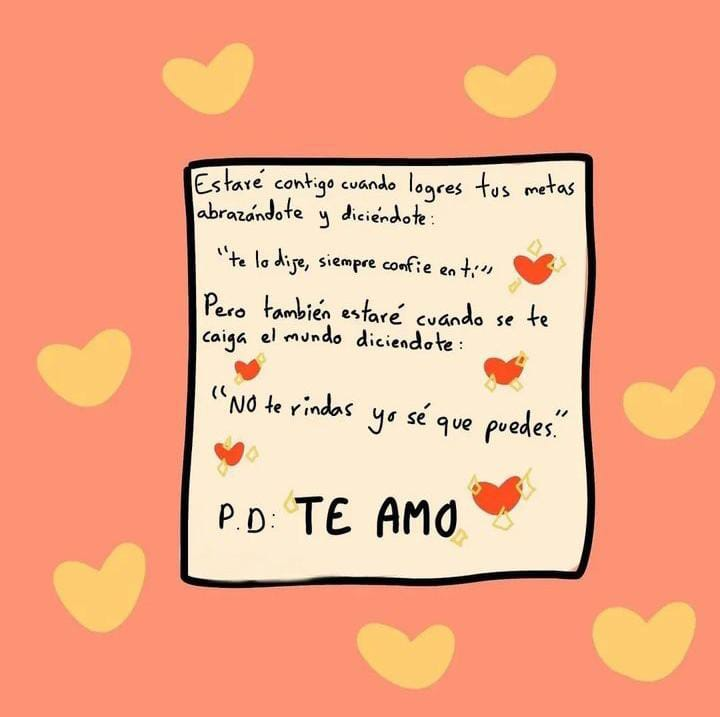 Estaré contigo cuando logres tus metas
abrazándote y diciéndote:
"te lo dije, siempre confie en ti"
Pero también estaré cuando se te
caiga el mundo diciendote:
"NO te rindas yo sé que puedes."
P.D: TE AMO